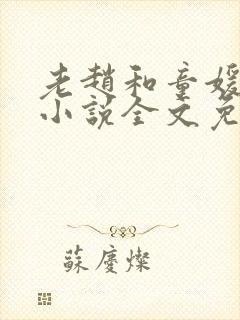 老趙和童媛
小說全文免
蘇慶燦